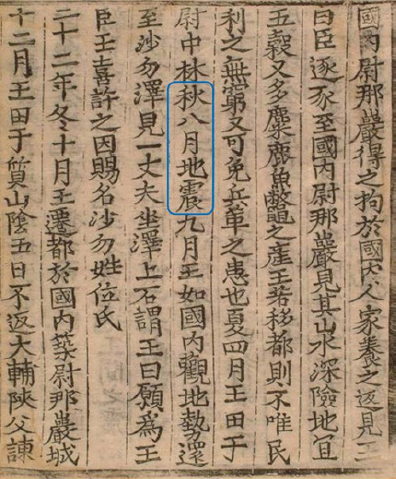 國內尉那巖得之拘於國內人家養之返見王
曰臣逐豕至國內尉那巖見其山水深險地宜
五穀又多麋鹿魚鼈之産王若移都則不唯民
利之無窮又可免兵革之患也夏四月王田于
尉中林秋八月地震九月王如國內觀地勢還
至沙勿澤見一丈夫坐澤上石謂王曰願爲王
臣王喜許之因賜名沙勿姓位氏
二十二年冬十月王遷都於國內築尉那巖城
十二月王田于質山陰五日不返大輔陜父諫